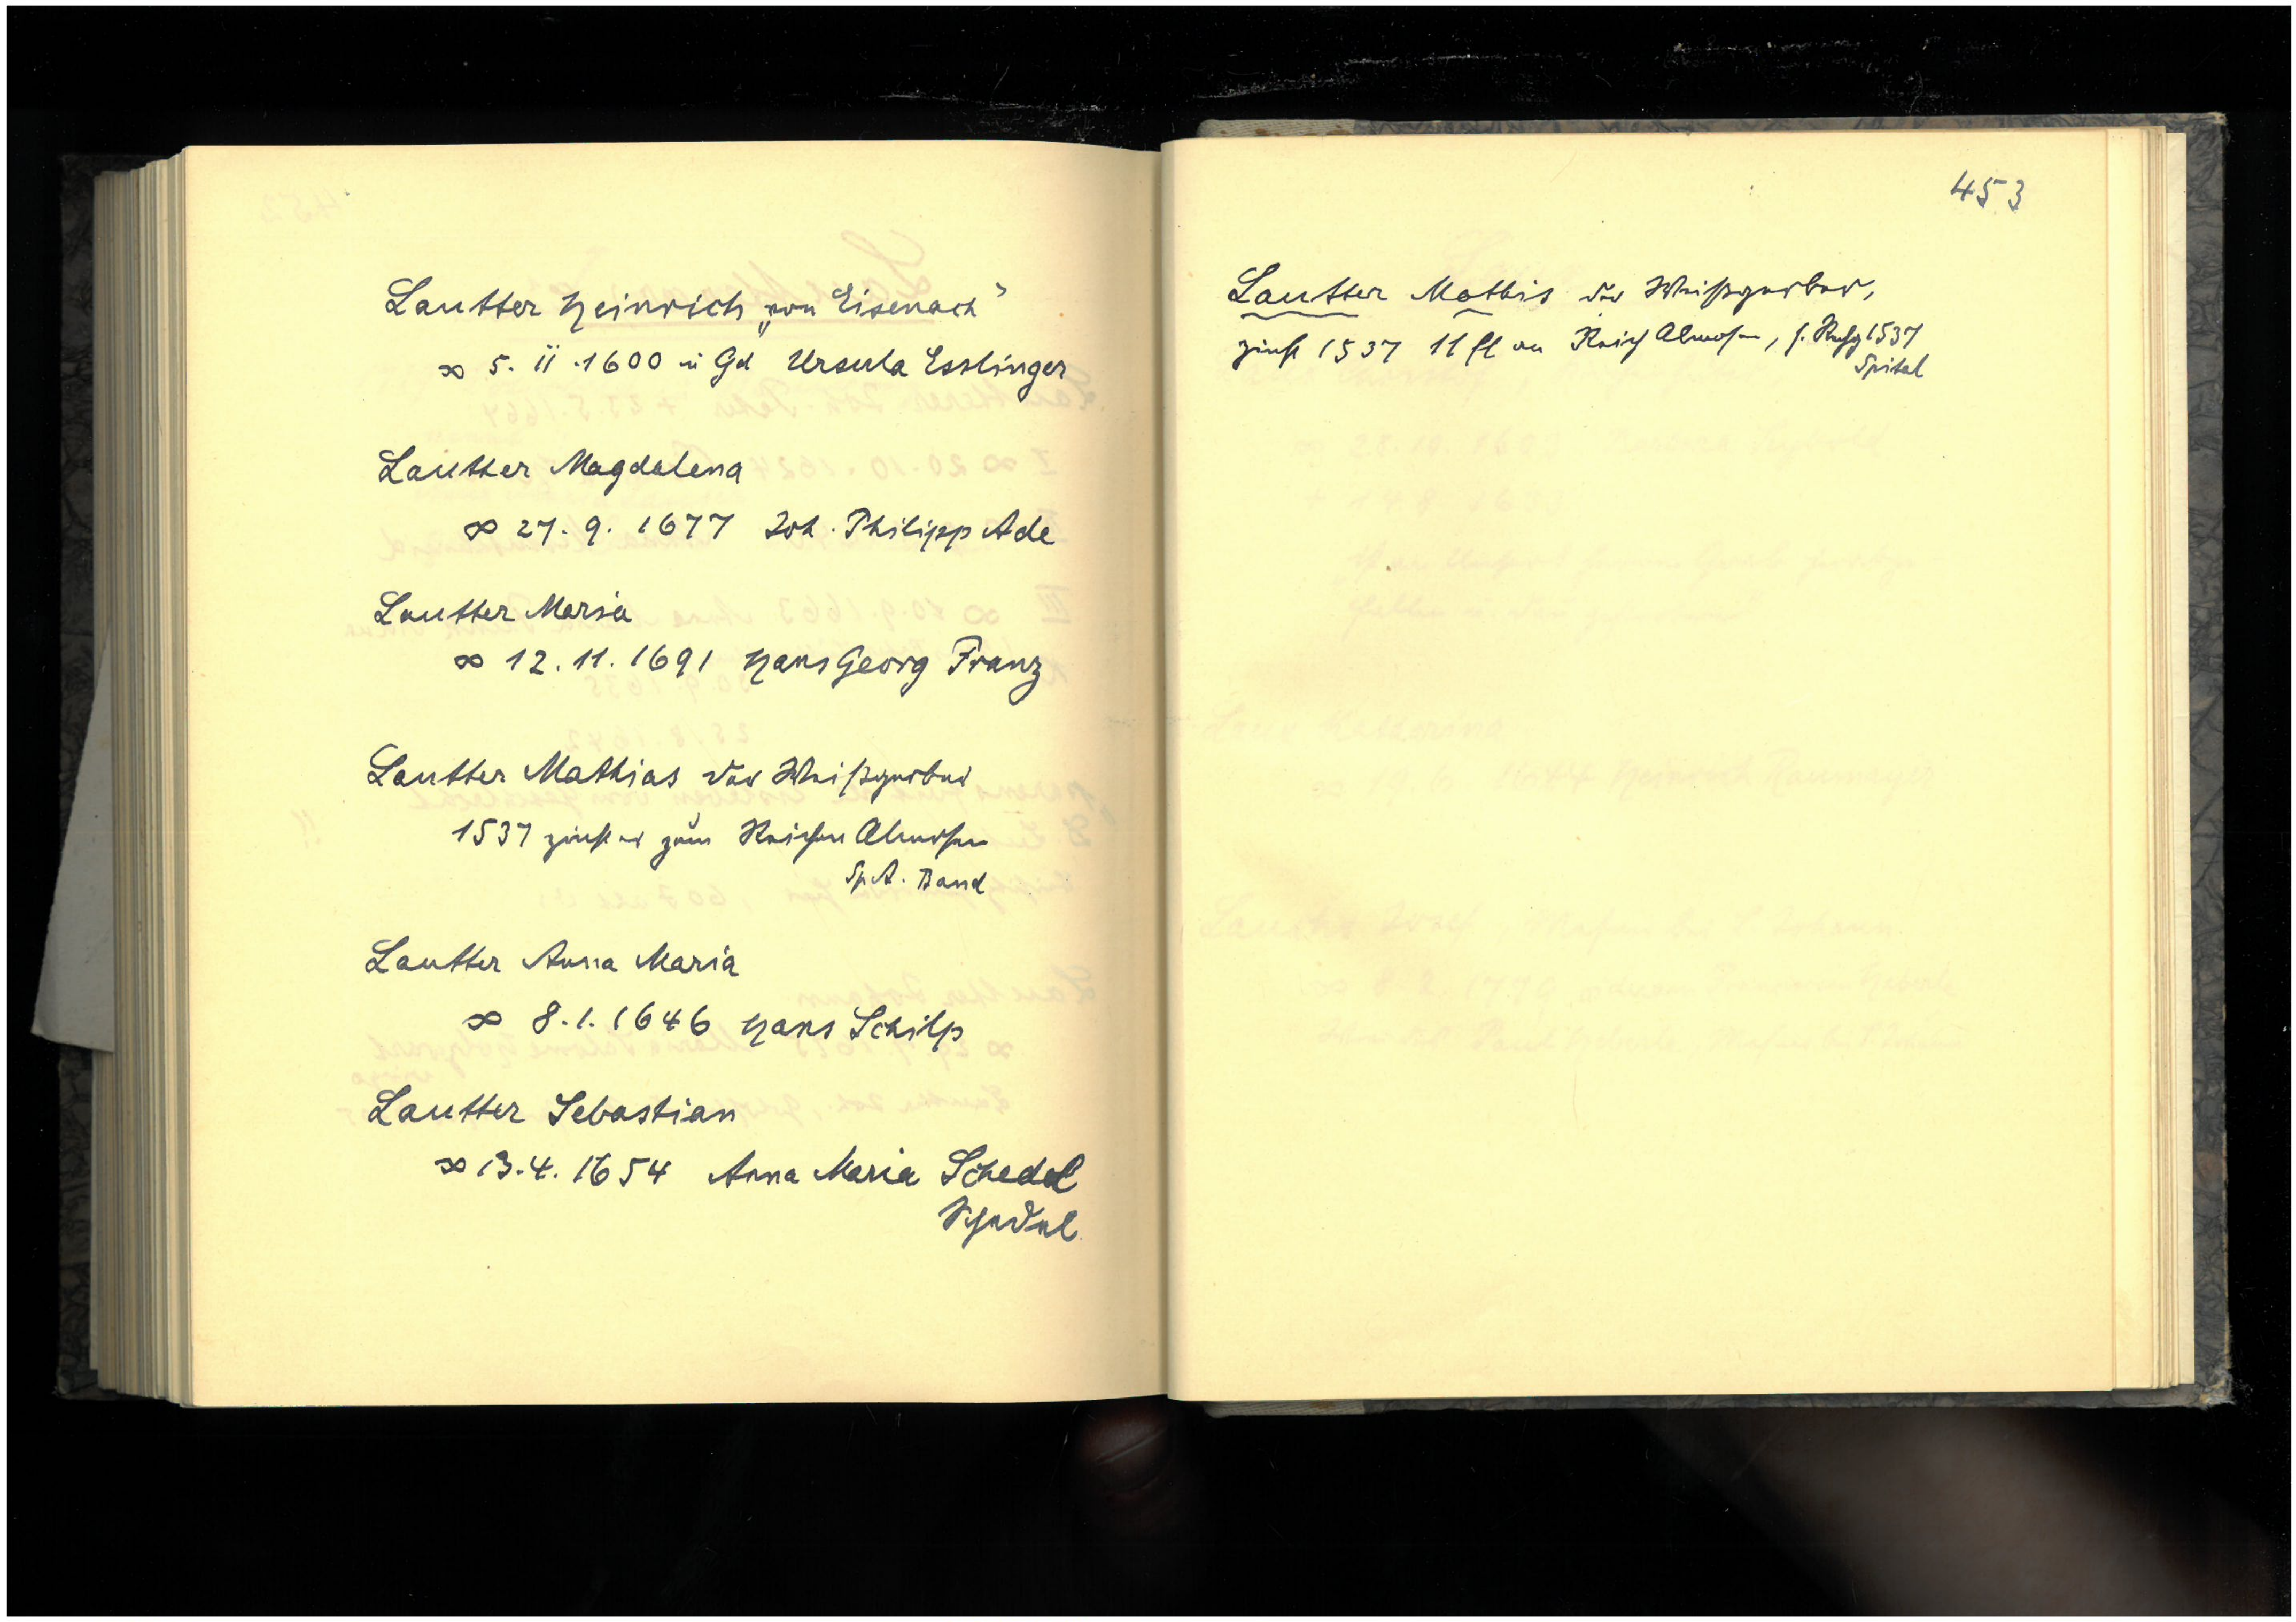 Lautter Heinrich „von Eisenach"
∞ 5. 11. 1600 in Gd Ursula Esslinger
Lautter Magdalena
∞ 27. 9. 1677 Joh. Philipp Ade
Lautter Maria
∞ 12. 11. 1691 Hans Georg Franz
Lautter Mathias der Weißgerber
1537 zinst er zum Reichen Almosen
Sp. A. Band
Lautter Anna Maria
∞ 8. 1. 1646 Hans Schilp
Lautter Sebastian
∞ 13. 4. 1654 Anna Maria Schedel
Schedel
453
Lautter Mathis der Weißgerber,
zinst 1537 11 fl an Reich Almosen, s. 1537
Spital